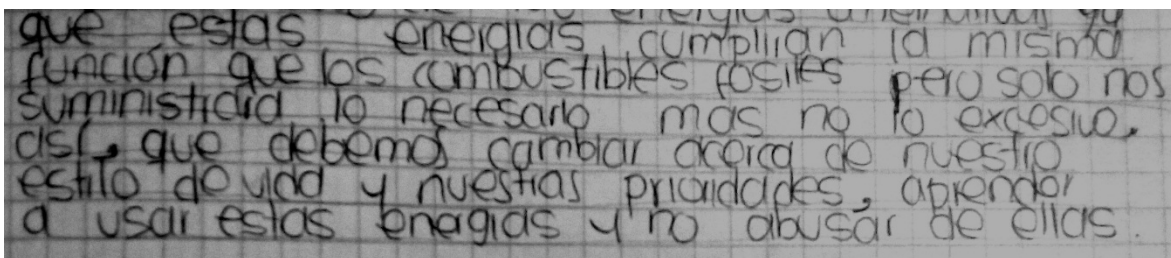 energias alternativas ya
que estas energias cumplirian la misma
función que los combustibles fosiles pero solo nos
suministrara lo necesario mas no lo excesivo.
así, que debemos cambiar acerca de nuestro
estilo de vida y nuestras prioridades, aprender
a usar estas energias y no abusar de ellas.